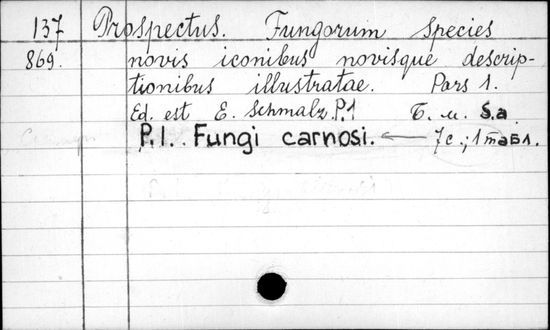 137 Prospectus. Fungorum species
869. novis iconibus novisque descrip-
tionibus illustratae. Pars 1.
Ed. est E. Schmalz. P.1 Т. и. S.a
P.I.. Fungi carnosi. ← 7с.; 1 табл.